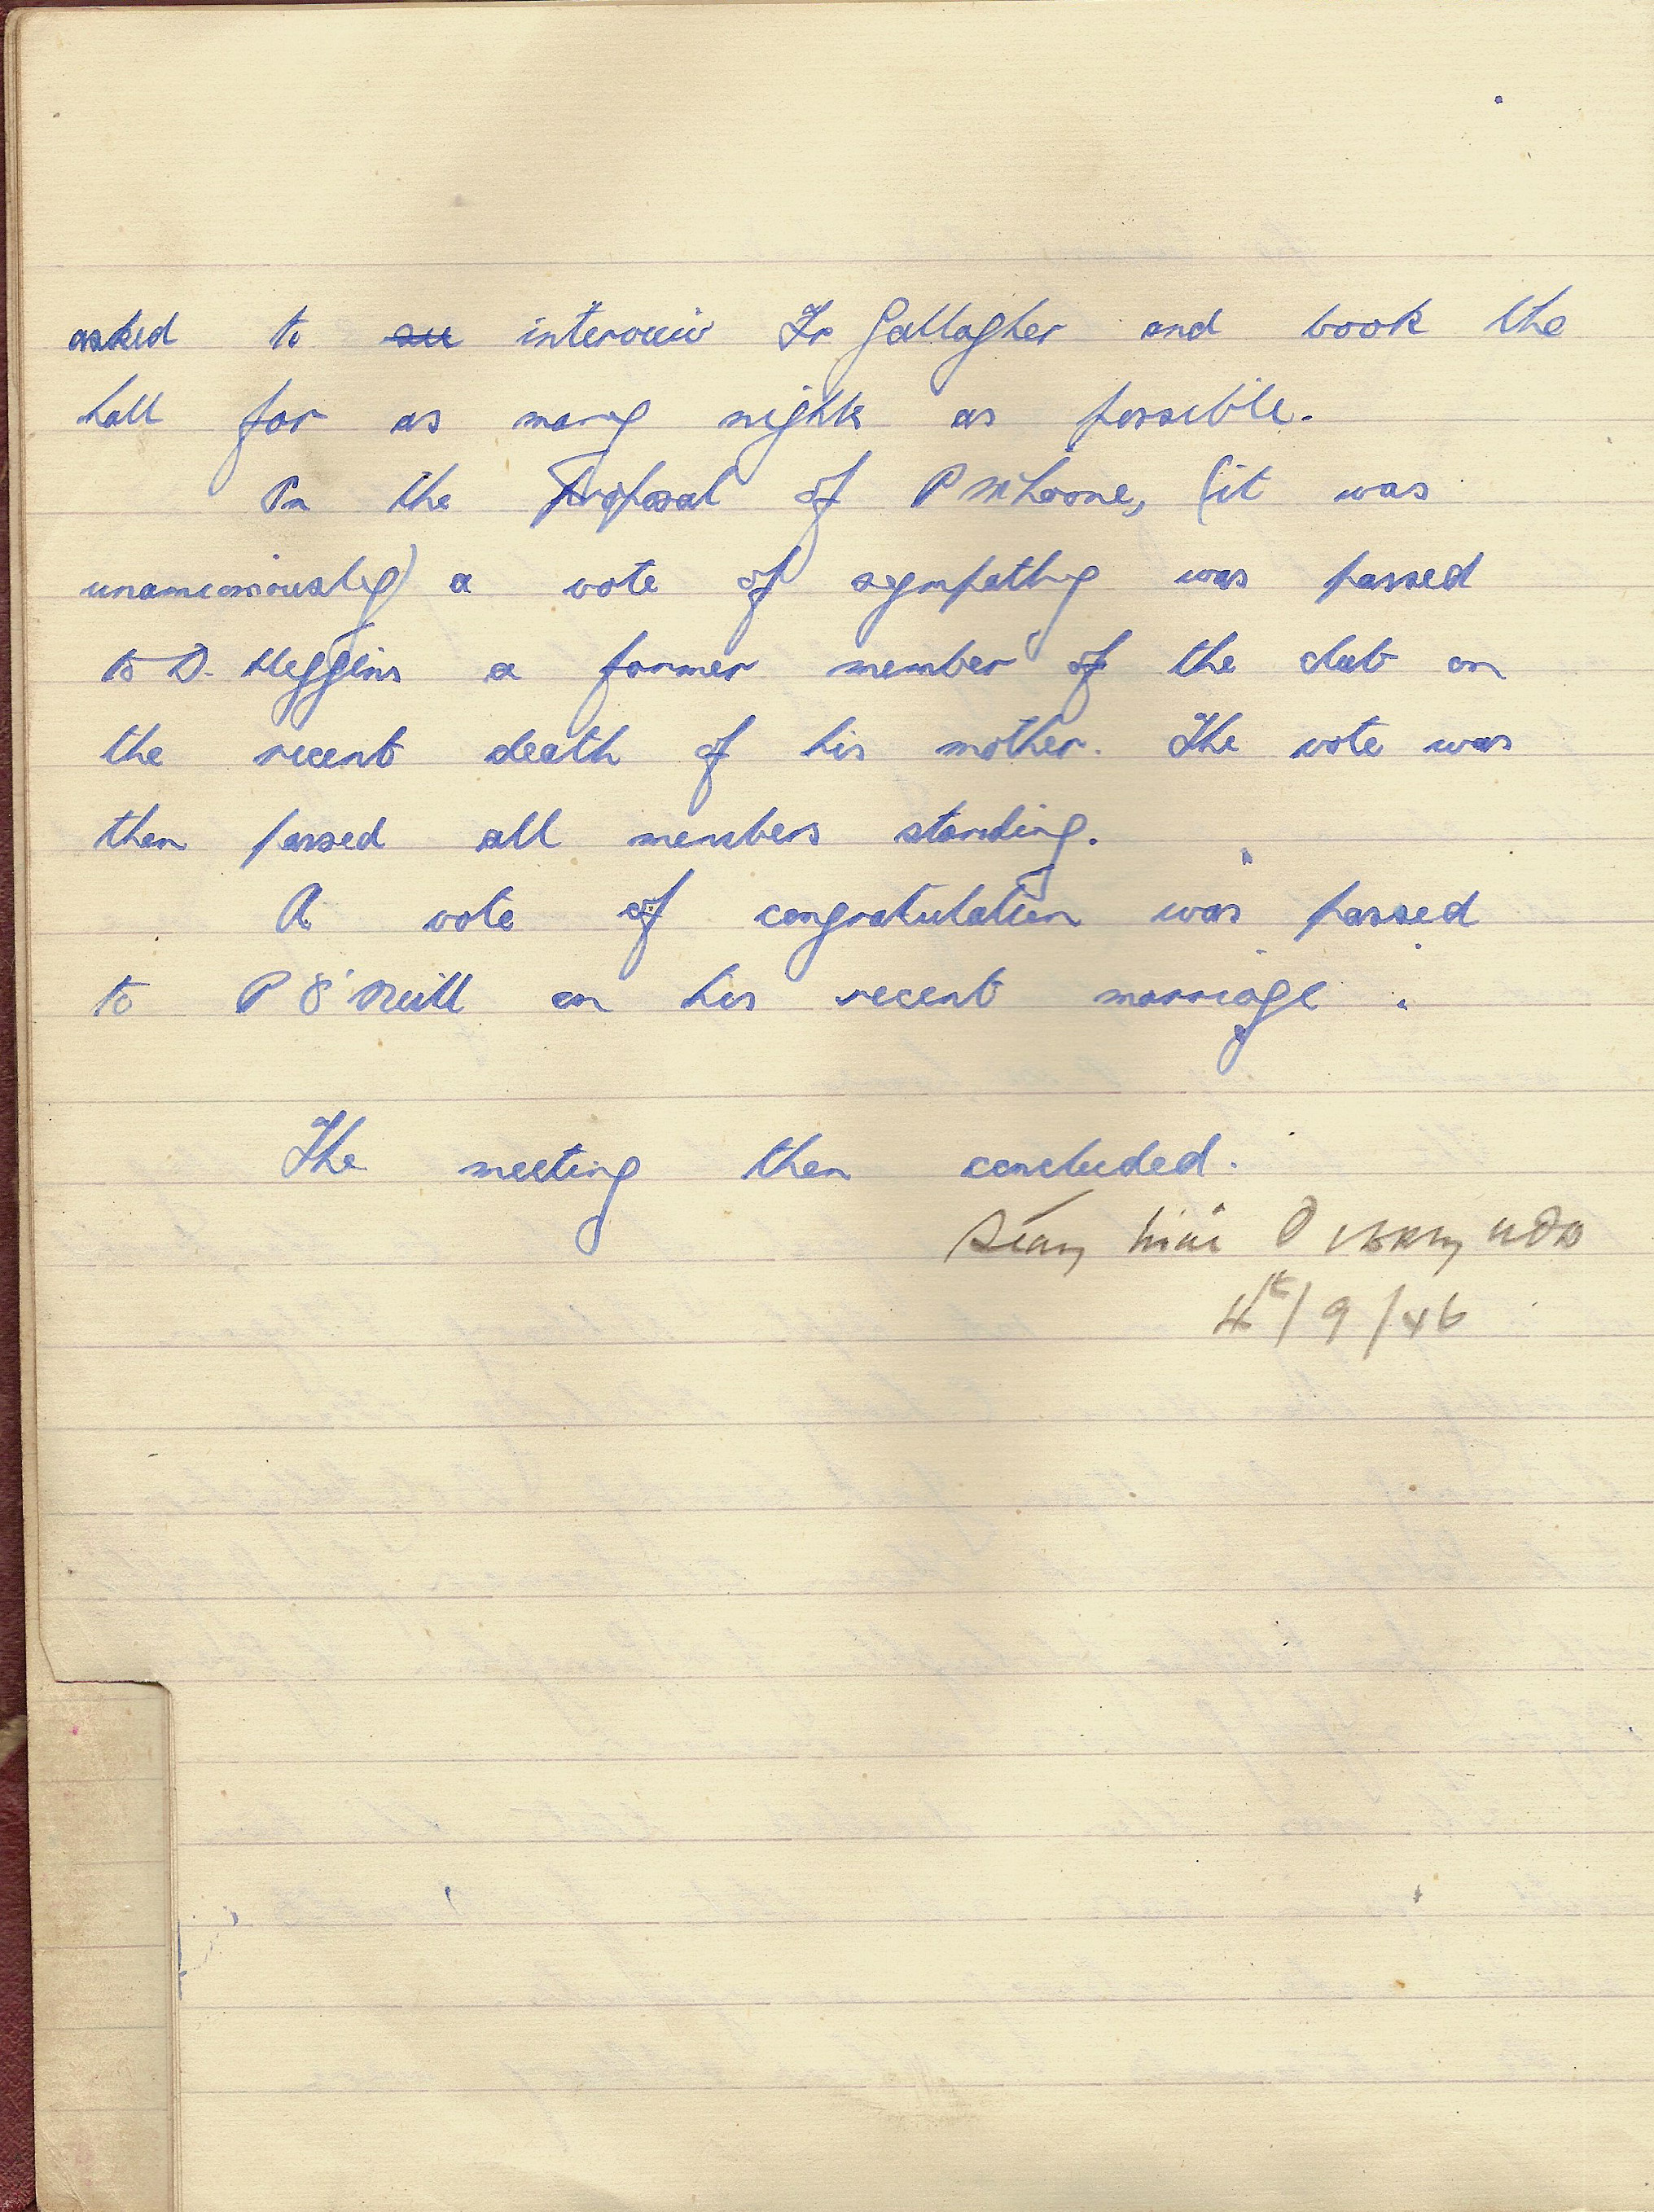 asked to see interview Fr Gallagher and book the
hall for as many nights as possible.
On the Proposal of P , (it was
unamimiously) a vote of sympathy was passed
to D. Heggins a former member of the club on
the recent death of his mother. The vote was
then passed all members standing.
A vote of congratulation was passed
to P O'Neill on his recent marriage.
The meeting then concluded.
Seán
4th/9/46